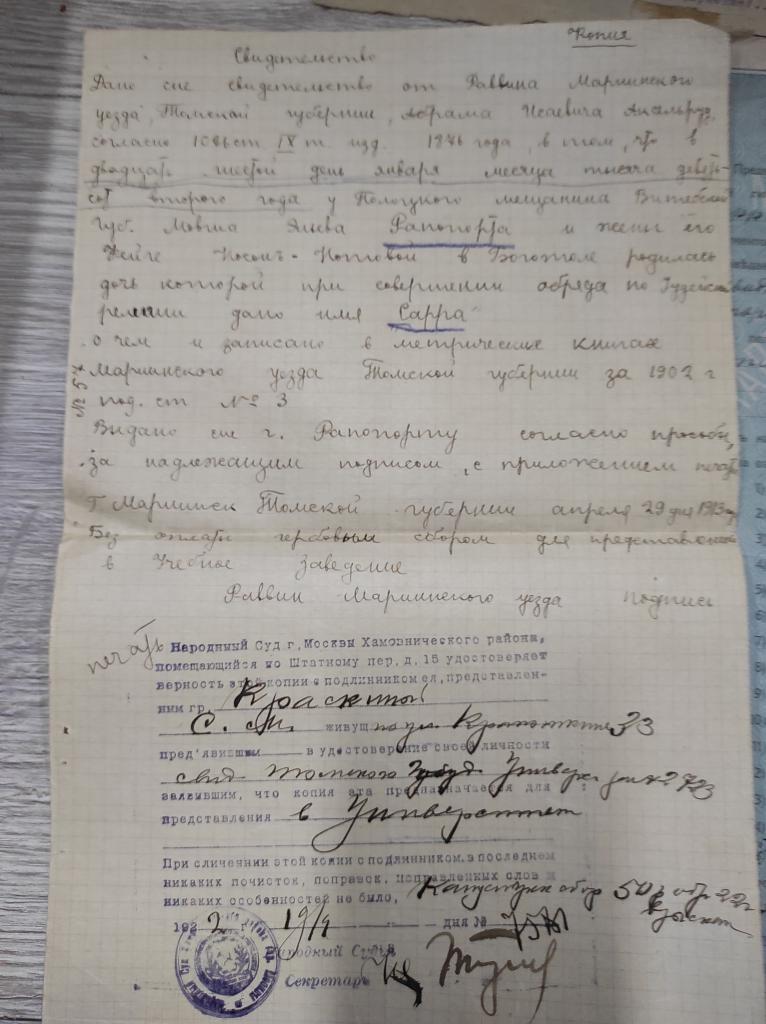 Копия
Свидетельство
Дано сие свидетельство от Раввина Мариинского
уезда, Томской губернии, Абрама Исаевича
согласно IX т. изд. 1876 года, в том, что в
двадцать шестой день января месяца тысяча девять-
сот второго года у Полоцкого мещанина Витебской
губ. Мовша Рапопорта и жены его
в Боготоле родилась
дочь которой при совершении обряда по Іудейской
религии дано имя Сарра
о чем и записано в метрических книгах
№ 57
Мариинского уезда Томской губернии за 1902 г
под. ст № 3
Выдано сие г. Рапопорту согласно просьбы,
за надлежащим подписом, с приложением печати
Г. Мариинск Томской губернии апреля 29 дня 1913
Без оплаты гербовым сбором для представления
в Учебное заведение
Раввин Мариинского уезда подпись
печать
Народный Суд г. Москвы Хамовнического района,
помещающийся по Штатному пер, д. 15 удостоверяет
верность этой копии с подлинником ея, представлен-
ным гр. Краскиной
С. М. живущ по ул Кропоткина 33
пред'явившим в удостоверение своей личности
свид Томского Универ 2723
заявившим, что копия эта предназначается для
представления в Университет
При сличении этой копии с подлинником, в последнем
никаких почисток, поправок, исправленных слов и
никаких особенностей не было,
1922 19/ дня №
Народный Судья
Секретарь